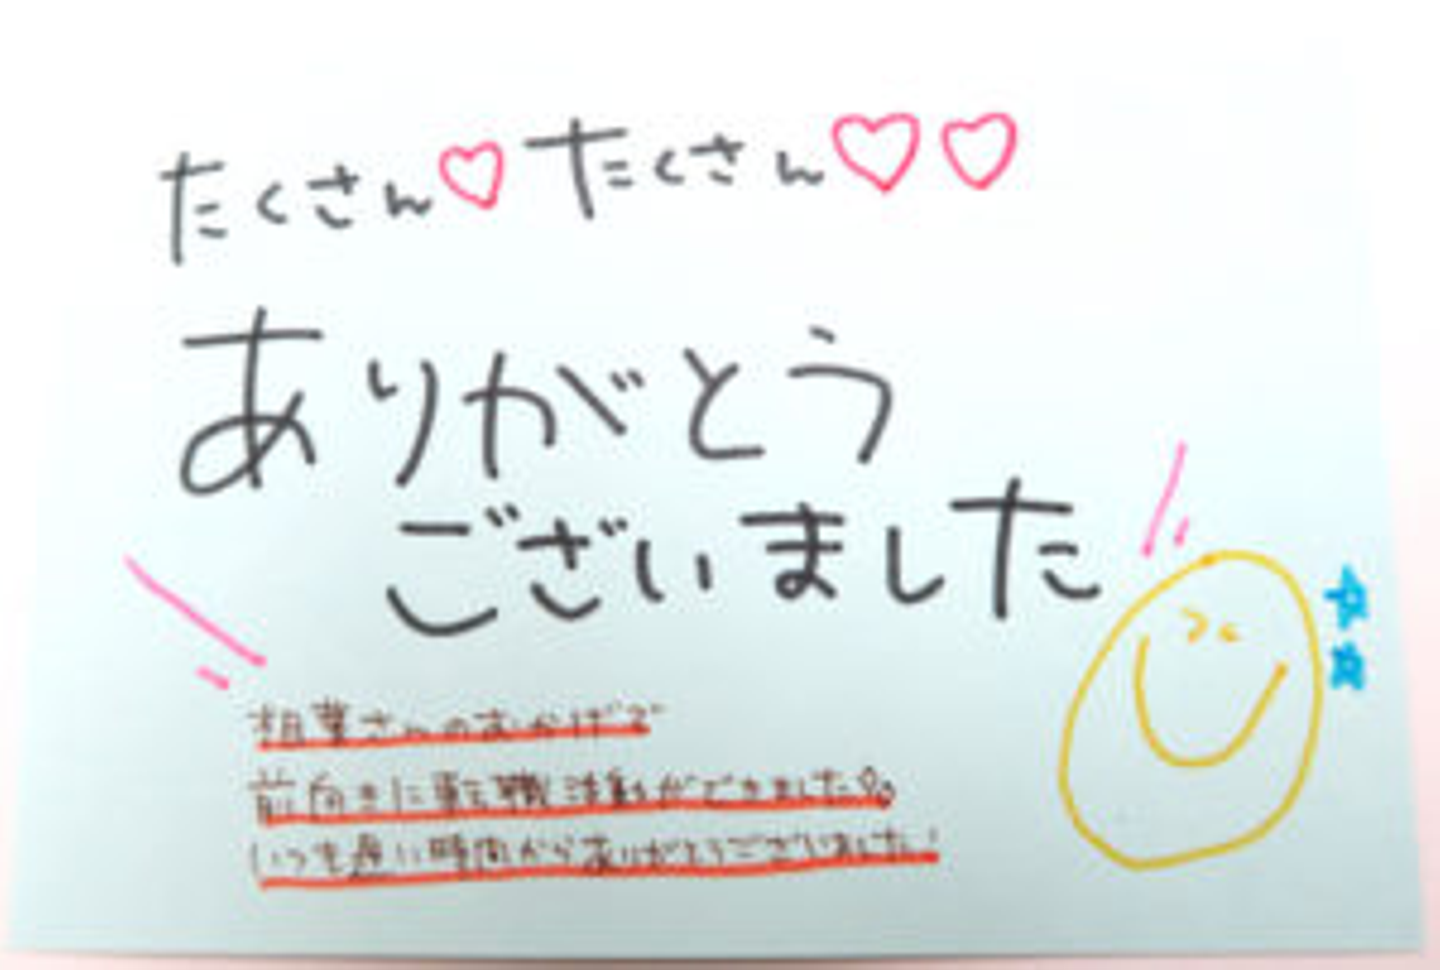 たくさん♡たくさん♡♡
ありがとう
ございました
相葉さんのおかげで
前向きに転職活動ができました
いつも遅い時間からありがとうございました!